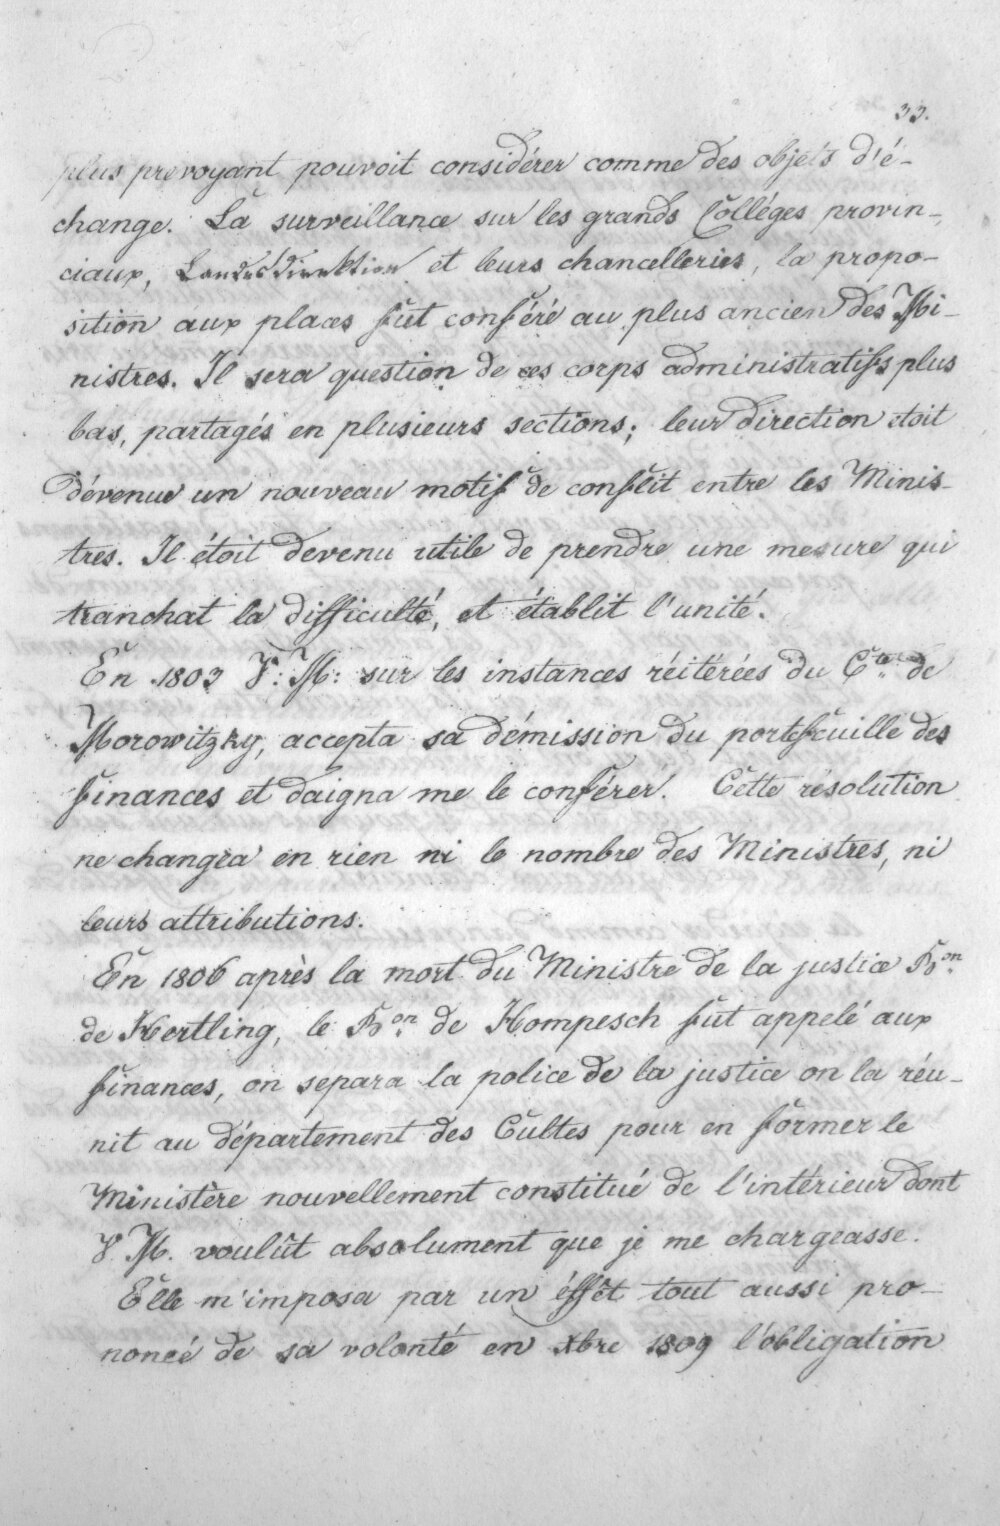 33.
plus prevoyant pouvoit considérer comme des objets d'é-
change. La surveillance sur les grands Colléges provin-
ciaux, Landesdirektion et leurs chancelleries, la propo-
sition aux places fut conféré au plus ancien des Mi-
nistres. Il sera question de ces corps administratifs plus
bas, partagés en plusieurs sections; leur direction etoit
dévenue un nouveau motif de conflit entre les Minis-
tres. Il étoit devenu utile de prendre une mesure qui
tranchat la difficulté, et établit l'unité.
En 1803 V: M: sur les instances réitérées du Cte de
Morowitzky, accepta sa démission du portefeuille des
finances et daigna me le conférer. Cette résolution
ne changea en rien ni le nombre des Ministres, ni
leurs attributions.
En 1806 après la mort du Ministre de la justice Bon
de Hertling, le Bon de Hompesch fut appelé aux
finances, on separa la police de la justice on la réu-
nit au département des Cultes pour en former le
Ministère nouvellement constitué de l'intérieur dont
V. M. voulût absolument que je me chargeasse.
Elle m'imposa par un éffêt tout aussi pro-
noncé de sa volonté en Xbre 1809 l'obligation